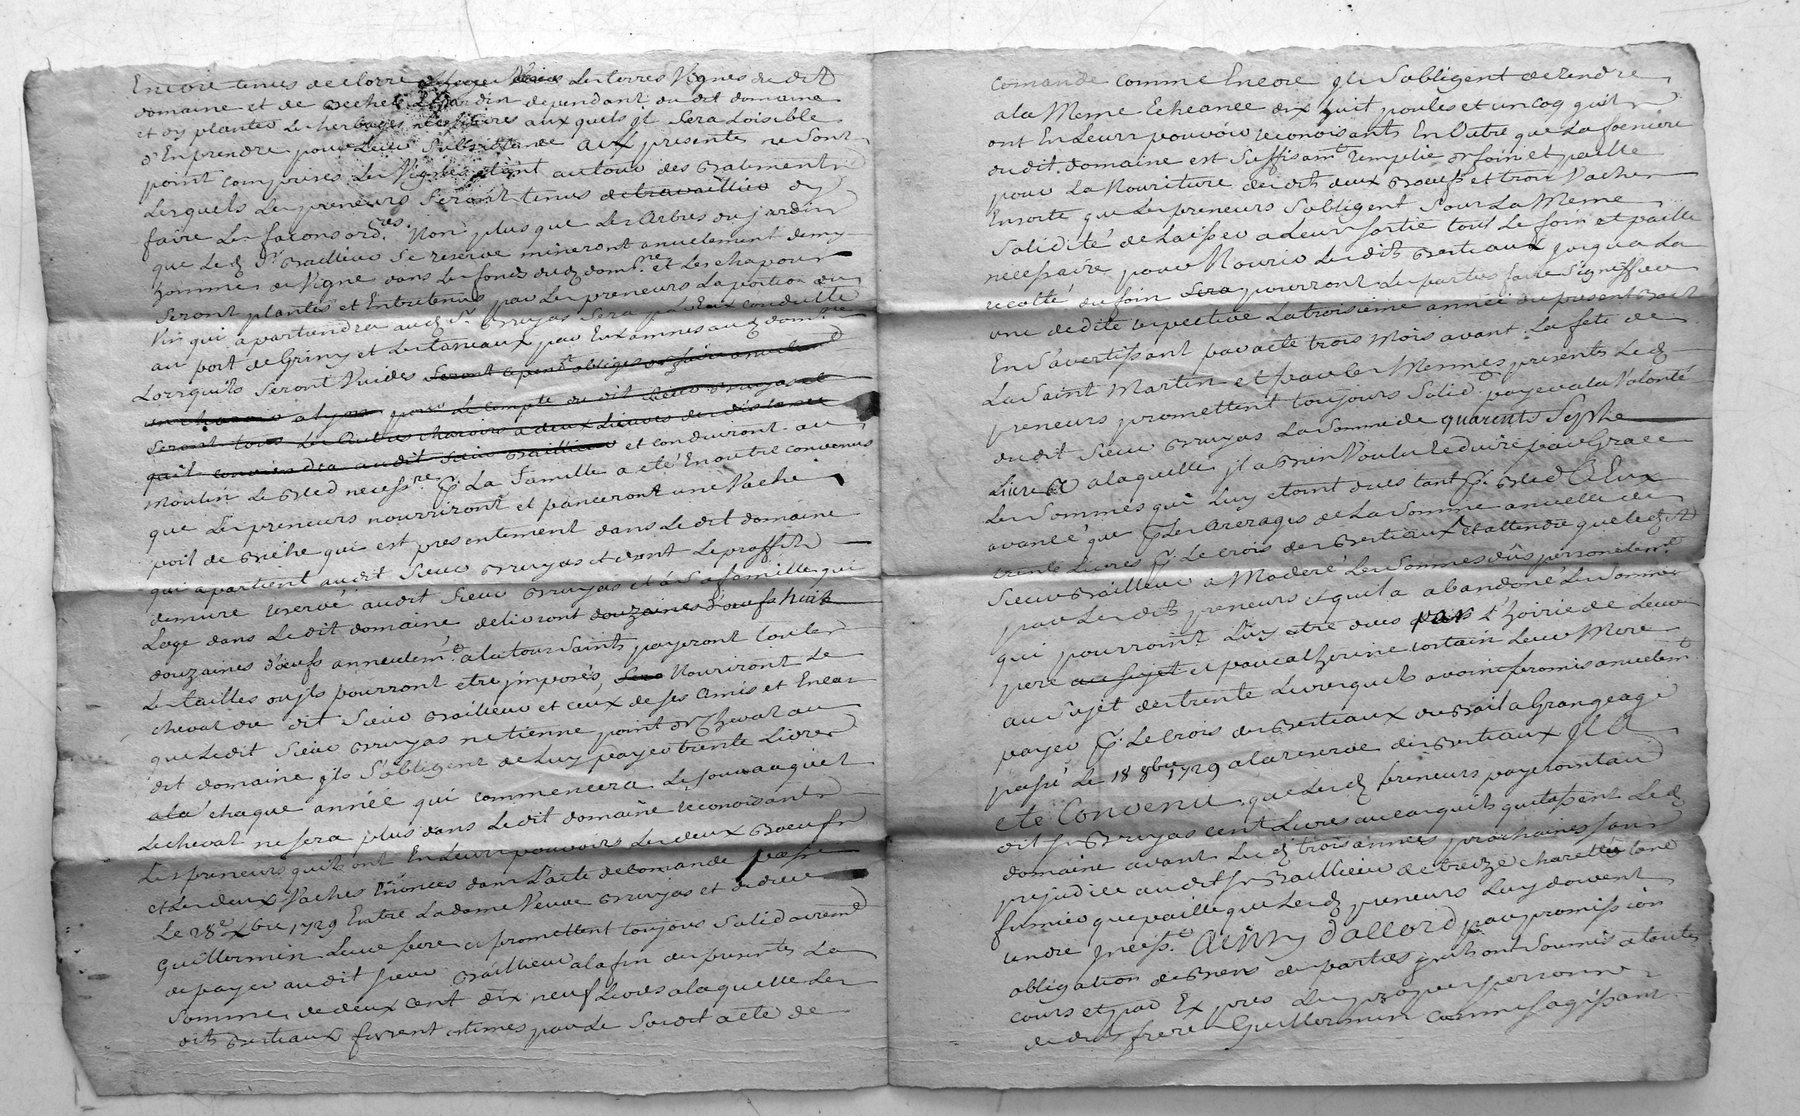 Encore tenus de clorre les terres Vignes du dit
domaine et de becher le Jardin dependant du dit domaine
et dy planter les herbages necessaires auxquels Jl Sera Loisible
d'En prendre pour leur Subsistance aux presentes ne Sont
point comprises les Vignes étant autour des Batiments
Lesquels les preneurs Seront tenus de travailler dy
faire les façons ordres. Non plus que les Arbres du jardin
que led. Sr. Baillieur Se reserve mineront anuelement demy
hommée de Vigne dans les fonds dud domne. et les chapons
Seront plantés et Entretenus par les preneurs La portion du
Vin qui apartiendra aud Sr. Bruyas Sera par Eux conduitte
au port de Griny et les taneaux par Eux amenés aud domne
Lorsquils Seront Vuides Seront
a lyon pour le compte du dit Sieur Bruyas et
Seront tous les autres charois a deux Lieues de distance
quil conviendra audit Sieur Baillieur et conduiront au
moulin le Bled necessre. p. La famille a eté En outre convenus
que les preneurs nourriront et panceront une Vache
poil de Biche qui est presentement dans le dit domaine
qui apartient audit Sieur Bruyas et dont le proffit
demure reservé audit Sieur Bruyas et a Sa famille qui
Loge dans le dit domaine delivront douzaines d'oeufs huit
douzaines d'oeufs annuelemt. a la tous Saints payeront toutes
les tailles ou jls pourront etre jmposés, Nouriront le
cheval du dit Sieur Baillieur et ceux de ses Amis et En cas
que le dit Sieur Bruyas ne tienne point de Cheval au
dit domaine jls S'obligent de luy payer trente Livres
a la chaque année qui commencera Le jour auquel
le cheval ne Sera plus dans le dit domaine reconoisants
Les preneurs quils ont En Leurs pouvoirs les deux Boeufs
et les deux Vaches Enoncés dans l'acte de comande passé
le 28e. Xbre 1729 Entre La dame Veuve Bruyas et
Guillermin Leur frere et promettent toujours Solidairemt
de payer au dit Sieur Baillieur a la fin du presents La
Somme de deux cent dix neuf Livres a laquelle les
dits Bestiaux furent estimés par le Susdit acte de
comande comme Encore Jls S'obligent de rendre
a la Meme Echeance dix huit poules et un coq quils
ont En Leurs pouvoir reconoisants En Outre que La feniere
du dit domaine est Suffisamt. remplie de foin et paille
pour La Nouriture des dits deux Boeufs et trois Vaches
En sorte que les preneurs S'obligent Sous La Meme
Solidité de Laisser a Leur Sortie tout le foin et paille
necessaire pour Nourir les dits Bestiaux jusqua La
recolte du foin pourront les parties faire Signiffier
une dedite respective La troisieme année du present Bail
En S'avertissant par acte trois Mois avant La fete de
La Saint Martin et par les Memes presents les d.
preneurs promettent toujours Solidt. payer a la Volonté
du dit Sieur Bruyas La Somme de quarente Sept
Livres a laquelle jl a Bien Voulu reduire par Grace
Les Sommes qui Luy etoint dues tant p. Bled A Eux
avancé que p les Arerages de La Somme anuelle de
trente Livres p. Le Crois des Bestiaux Et attendu que led Sr
Sieur Baillieur a Moderé Les Sommes dûs personelemt.
par Les dits preneurs et quil a abandoné Les Sommes
qui pourroint Luy etre dues par L'hoirie de Leur
pere au Sujet et par Catherine Leur Mere
au Sujet des trente Livres quils avoint promis anuelemt
payer p. Le Crois des Bestiaux du Bail a Grangeage
passé Le 18 8bre 1729 a la reserve des Bestiaux Jl A
eté Convenu que les d. preneurs payeroint au
dit Sr Bruyas cent Livres au cas quils quitassent Led
domaine avant Les d. trois années prochaines Sans
prejudice au dit Sr Baillieur de treize charettés tant
fumier que paille que les d. preneurs Luy doivent
rendre Ainsy d'accord par promission
obligation de Biens des parties quils ont Soumis a toutes
cours et par Exprés Les propres personnes
des dits frere Guillermin comme S'agissant